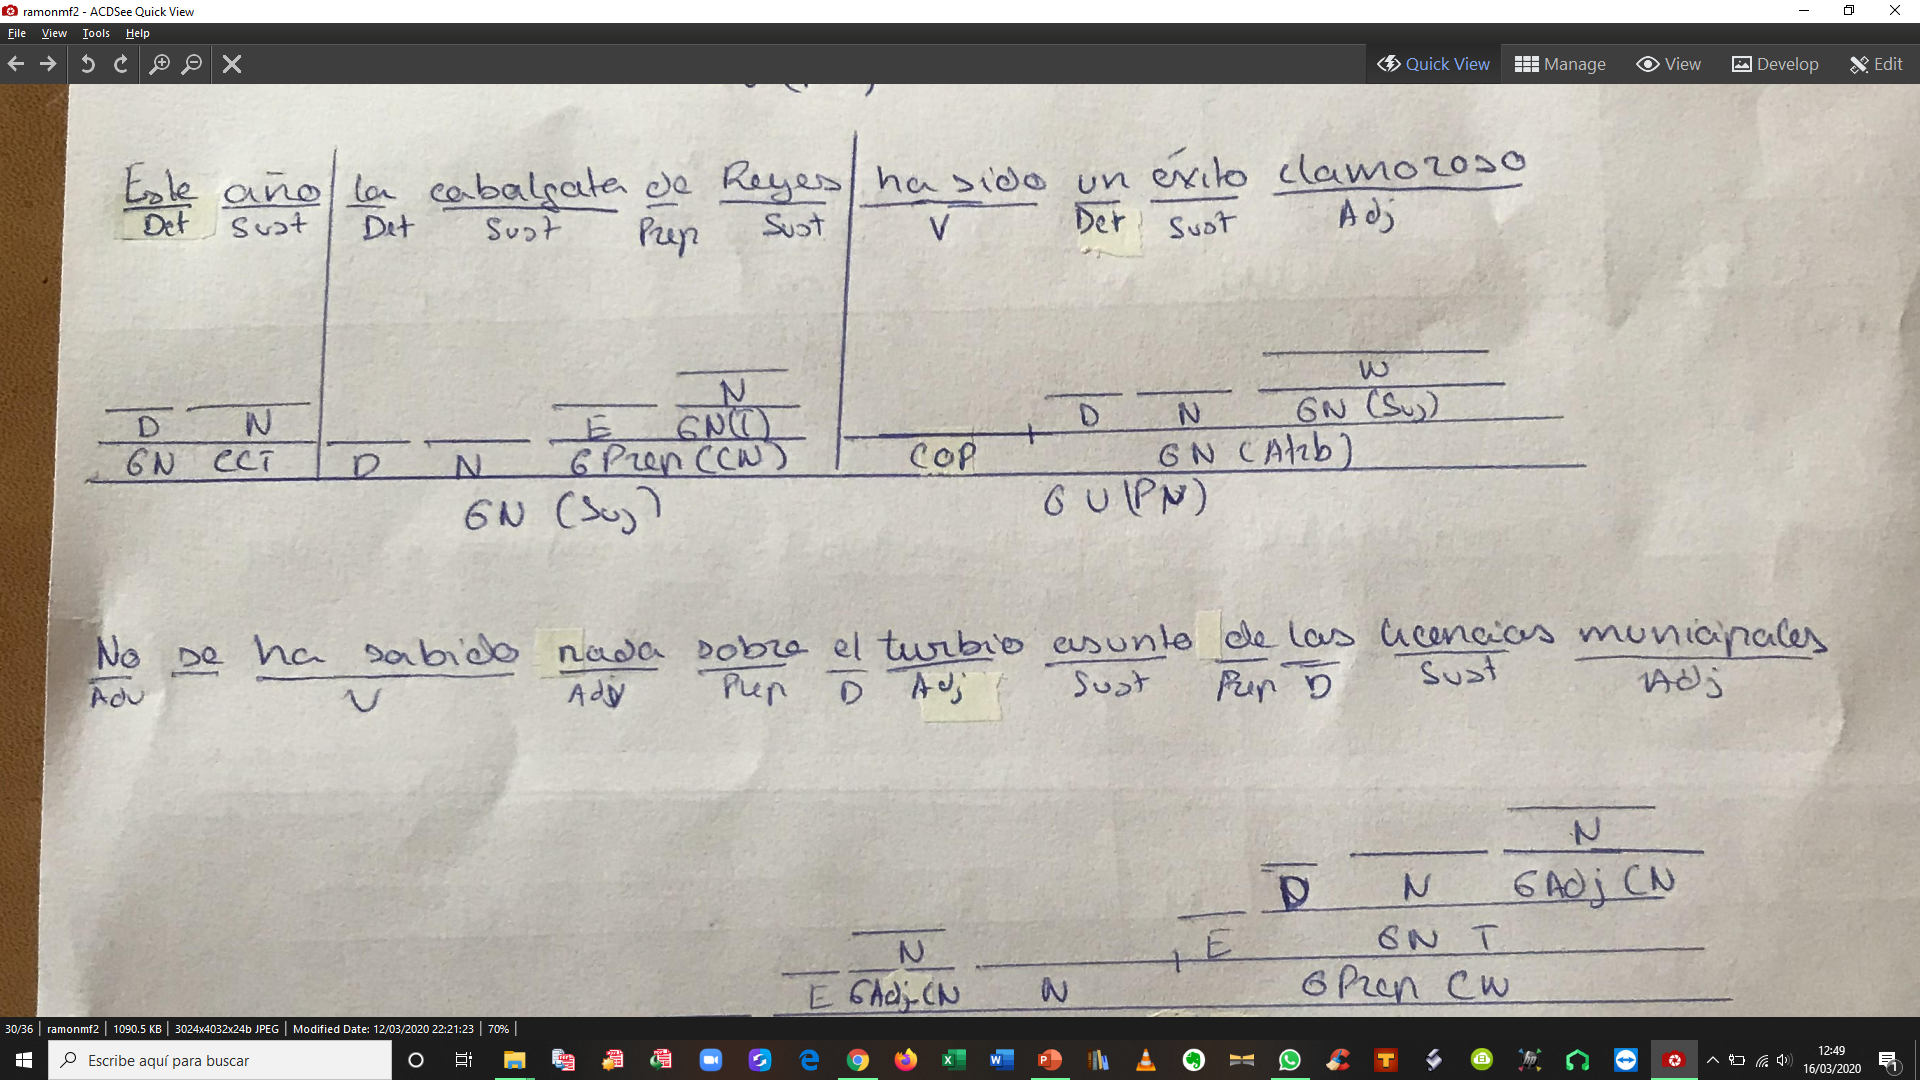 ramonmf2 - ACDSee Quick View
File View Tools Help
Quick View Manage View Develop Edit
Este año la cabalgata de Reyes ha sido un éxito clamoroso
Det Sust Det Sust Prep Sust V Det Sust Adj
N W
D N E GN(T) D N GN (Suj)
GN CCT D N GPrep (CN) COP GN (Atrb)
GN (Suj) GV (PN)
No se ha sabido nada sobre el turbio asunto de las licencias municipales
Adv V Adv Prep D Adj Sust Prep D Sust Adj
N
D N GAdj CN
N E GN T
E GAdj CN N GPrep CN
30/36 ramonmf2 1090.5 KB 3024x4032x24b JPEG Modified Date: 12/03/2020 22:21:23 70%
Escribe aquí para buscar
12:49
16/03/2020
1